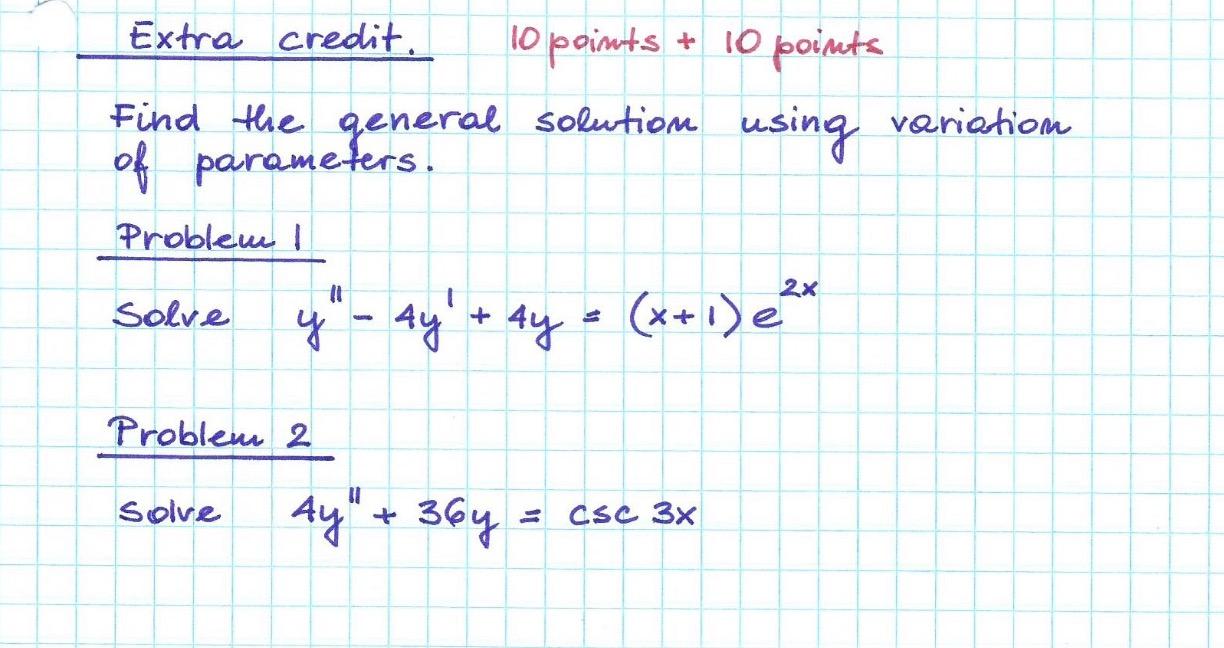 Extra credit. 10 points + 10 points
Find the general solution using variation
of parameters.
Problem 1
Solve y'' - 4y' + 4y = (x+1) e^{2x}
Problem 2
Solve 4y'' + 36y = csc 3x